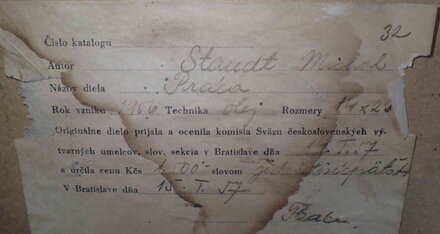 32
Číslo katalogu
Autor Staudt Michal
Názov diela Práča
Rok vzniku 1956 Technika olej Rozmery
Originálne dielo prijala a ocenila komisia Sväzu československých vý-
tvarných umelcov, slov. sekcia v Bratislave dňa 15. I. 57
a určila cenu Kčs slovom
V Bratislave dňa 15. I. 57